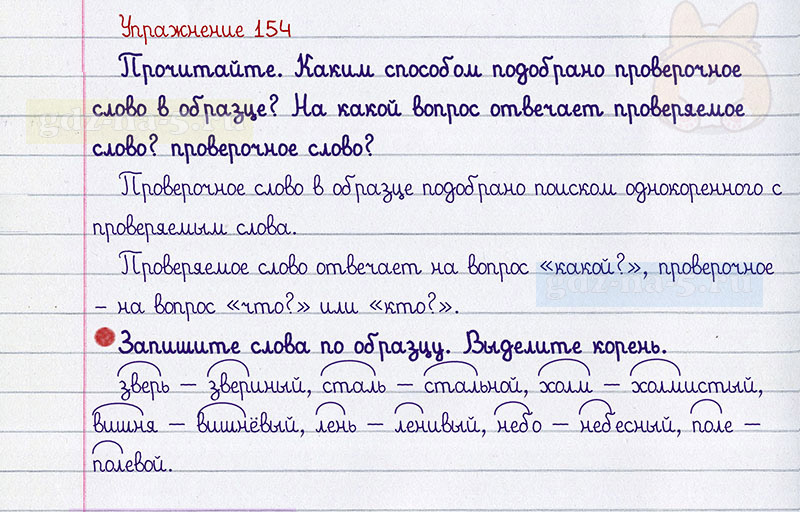 Упражнение 154
Прочитайте. Каким способом подобрано проверочное
слово в образце? На какой вопрос отвечает проверяемое
слово? проверочное слово?
Проверочное слово в образце подобрано поиском однокоренного с
проверяемым слова.
Проверяемое слово отвечает на вопрос «какой?», проверочное
– на вопрос «что?» или «кто?».
Запишите слова по образцу. Выделите корень.
зверь – звериный, сталь – стальной, холм – холмистый,
вишня – вишнёвый, лень – ленивый, небо – небесный, поле –
полевой.
gdz-na-5.ru
gdz-na-5.ru